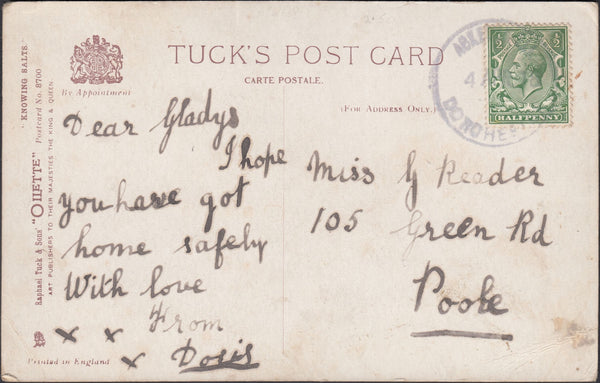 TUCK'S POST CARD
CARTE POSTALE.
By Appointment
(FOR ADDRESS ONLY.)
"KNOWING SALTS."
Postcard No. 8700
Raphael Tuck & Sons' "OILETTE"
ART PUBLISHERS TO THEIR MAJESTIES THE KING & QUEEN.
Dear Gladys
I hope
you have got
home safely
With love
From
x x
x Doris
Printed in England
Miss G Reader
105 Green Rd
Poole
½ ½
HALFPENNY
4
DORCHES